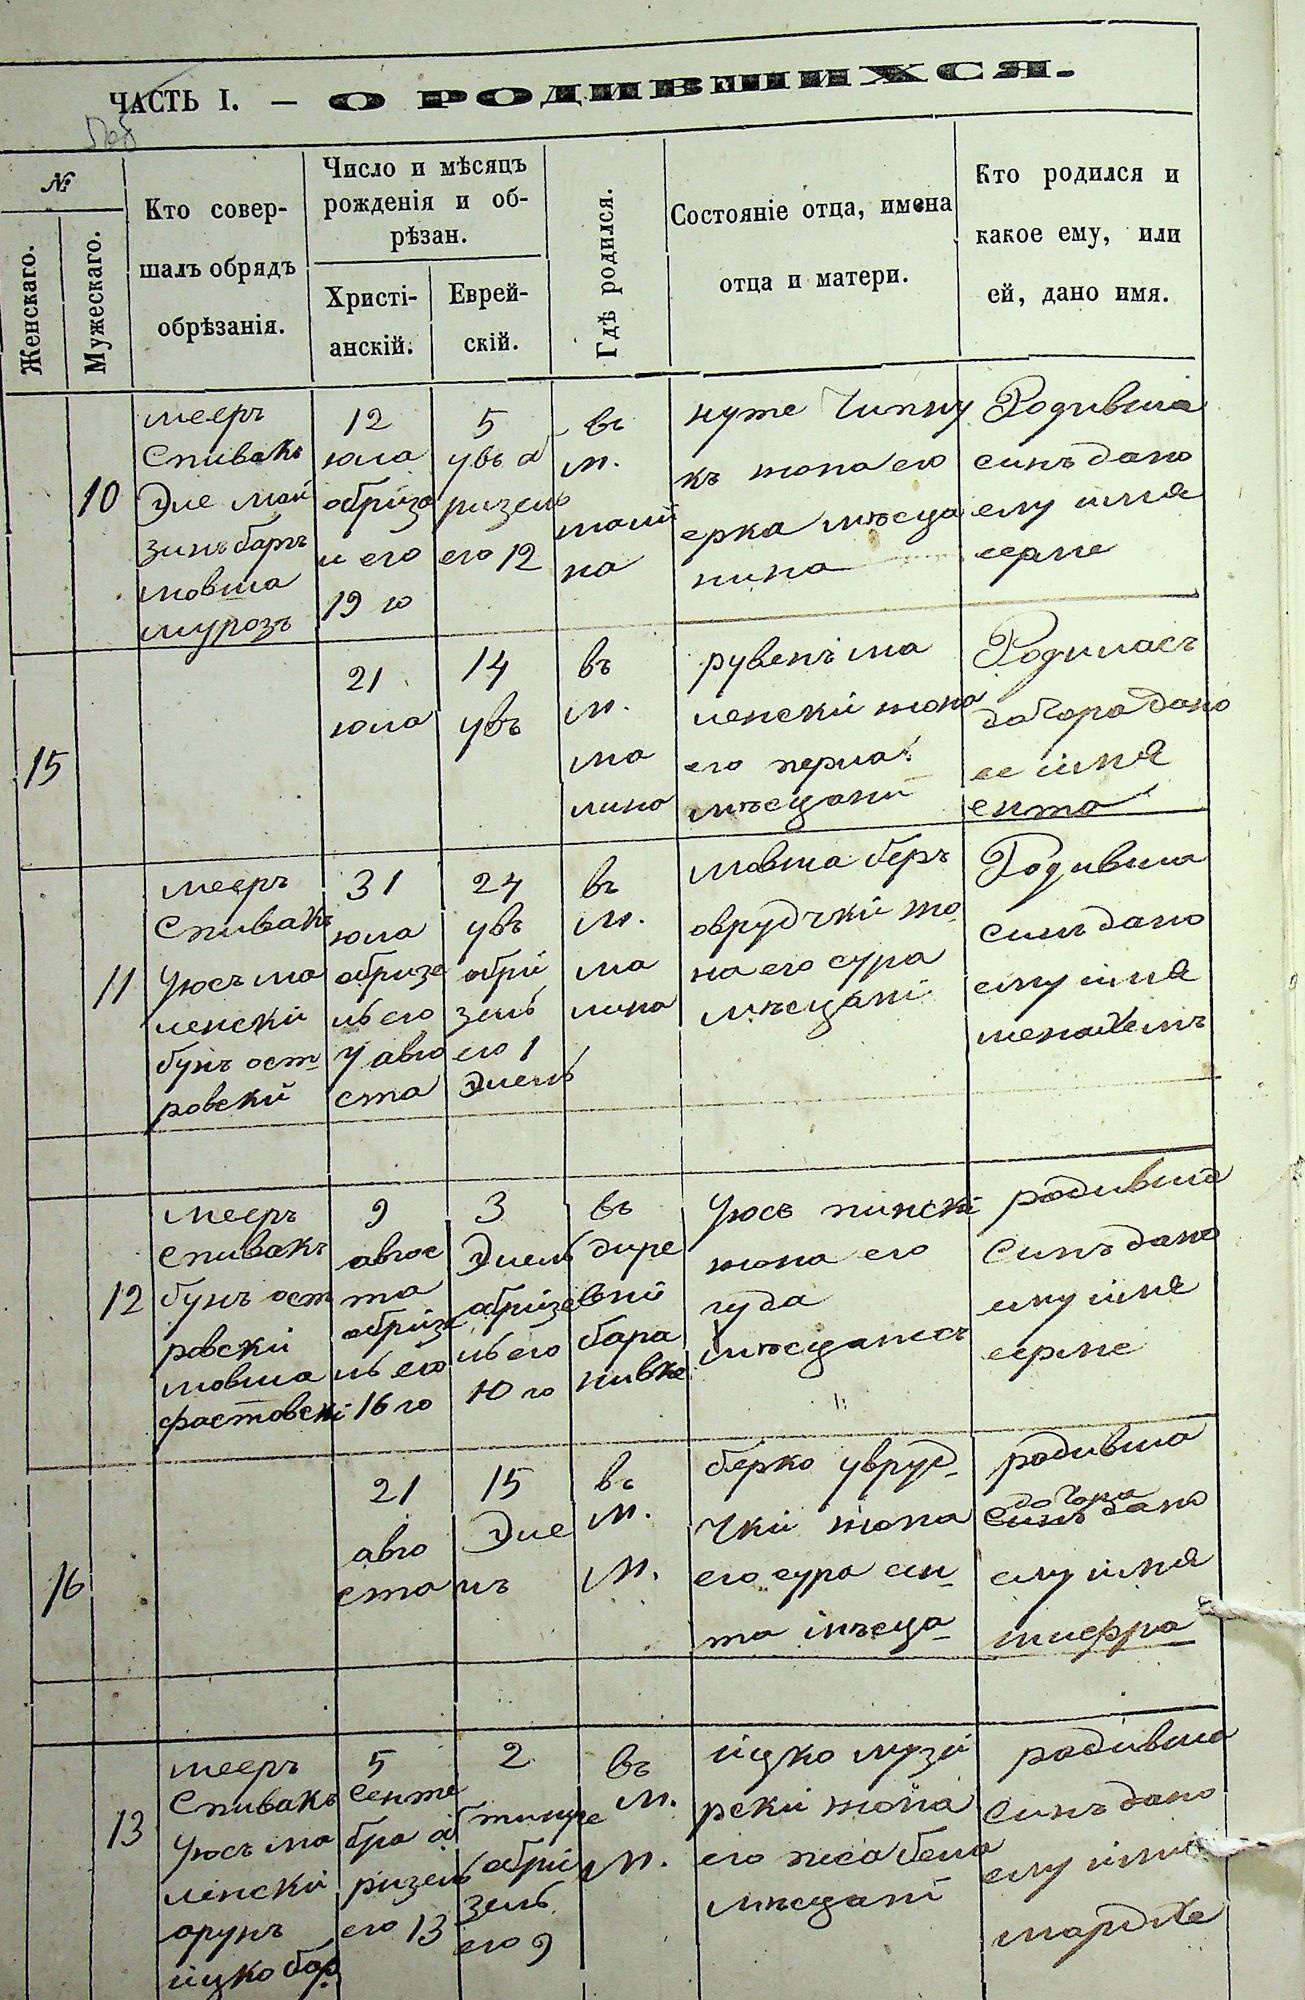 ЧАСТЬ I. — О РОДИВШИХСЯ.
№
Женскаго.
Мужескаго.
Кто совер-
шалъ обрядъ
обрѣзанія.
Число и мѣсяцъ
рожденія и об-
рѣзан.
Христі-
анскій.
Еврей-
скій.
Гдѣ родился.
Состояніе отца, имена
отца и матери.
Кто родился и
какое ему, или
ей, дано имя.
10
мееръ
Спивакъ
Эле май
зинъ баръ
мовша
мурозъ
12
юла
обриза
и его
19 го
5
увъ об
ризель
его 12
въ
м.
мали
на
нуте
къ жона его
ерка мѣсца
нина
Родивша
синъ дано
ему имя
серле
15
21
юла
14
увъ
въ
м.
ма
лина
рувенъ ма
ленскй жона
его перла
мѣсцани
Родилась
дочора дано
ее имя
ента
11
мееръ
Спивакъ
Уюсъ ма
ленски
бунъ ост
ровский
31
юла
обризе
нъ его
7 авго
ста
24
увъ
обри
зель
его 1
Элель
въ
м.
ма
лина
мовша беръ
оврудчкй жо
на его сура
мѣсцані
Родивша
синъ дано
ему імя
менахемъ
12
мееръ
спивакъ
бунъ ост
ровски
мовша
фастовскі
9
авгос
та
обризе
нъ его
16 го
3
Элель
обризе
нъ его
10 го
въ
дире
вній
бара
нивке
Уюсъ пинскі
жона его
гуда
мѣсцанесъ
родивша
Синъ дано
ему імя
серле
16
21
авго
ста
15
Эле
лъ
въ
м.
м.
берко уверуд-
чкй жона
его сура ен-
та мѣсца-
родивша
дочора
синъ дано
ему імя
шифра
13
мееръ
Спивакъ
Уюсъ ма
ленскі
арунъ
ицко бар
5
Сентя
бра об
ризель
его 13
2
тишре
обри
зель
его 9
въ
м.
м.
ицко музи
рскй жона
его песа бела
мѣсцані
родивша
Синъ дано
ему імя
мордхе